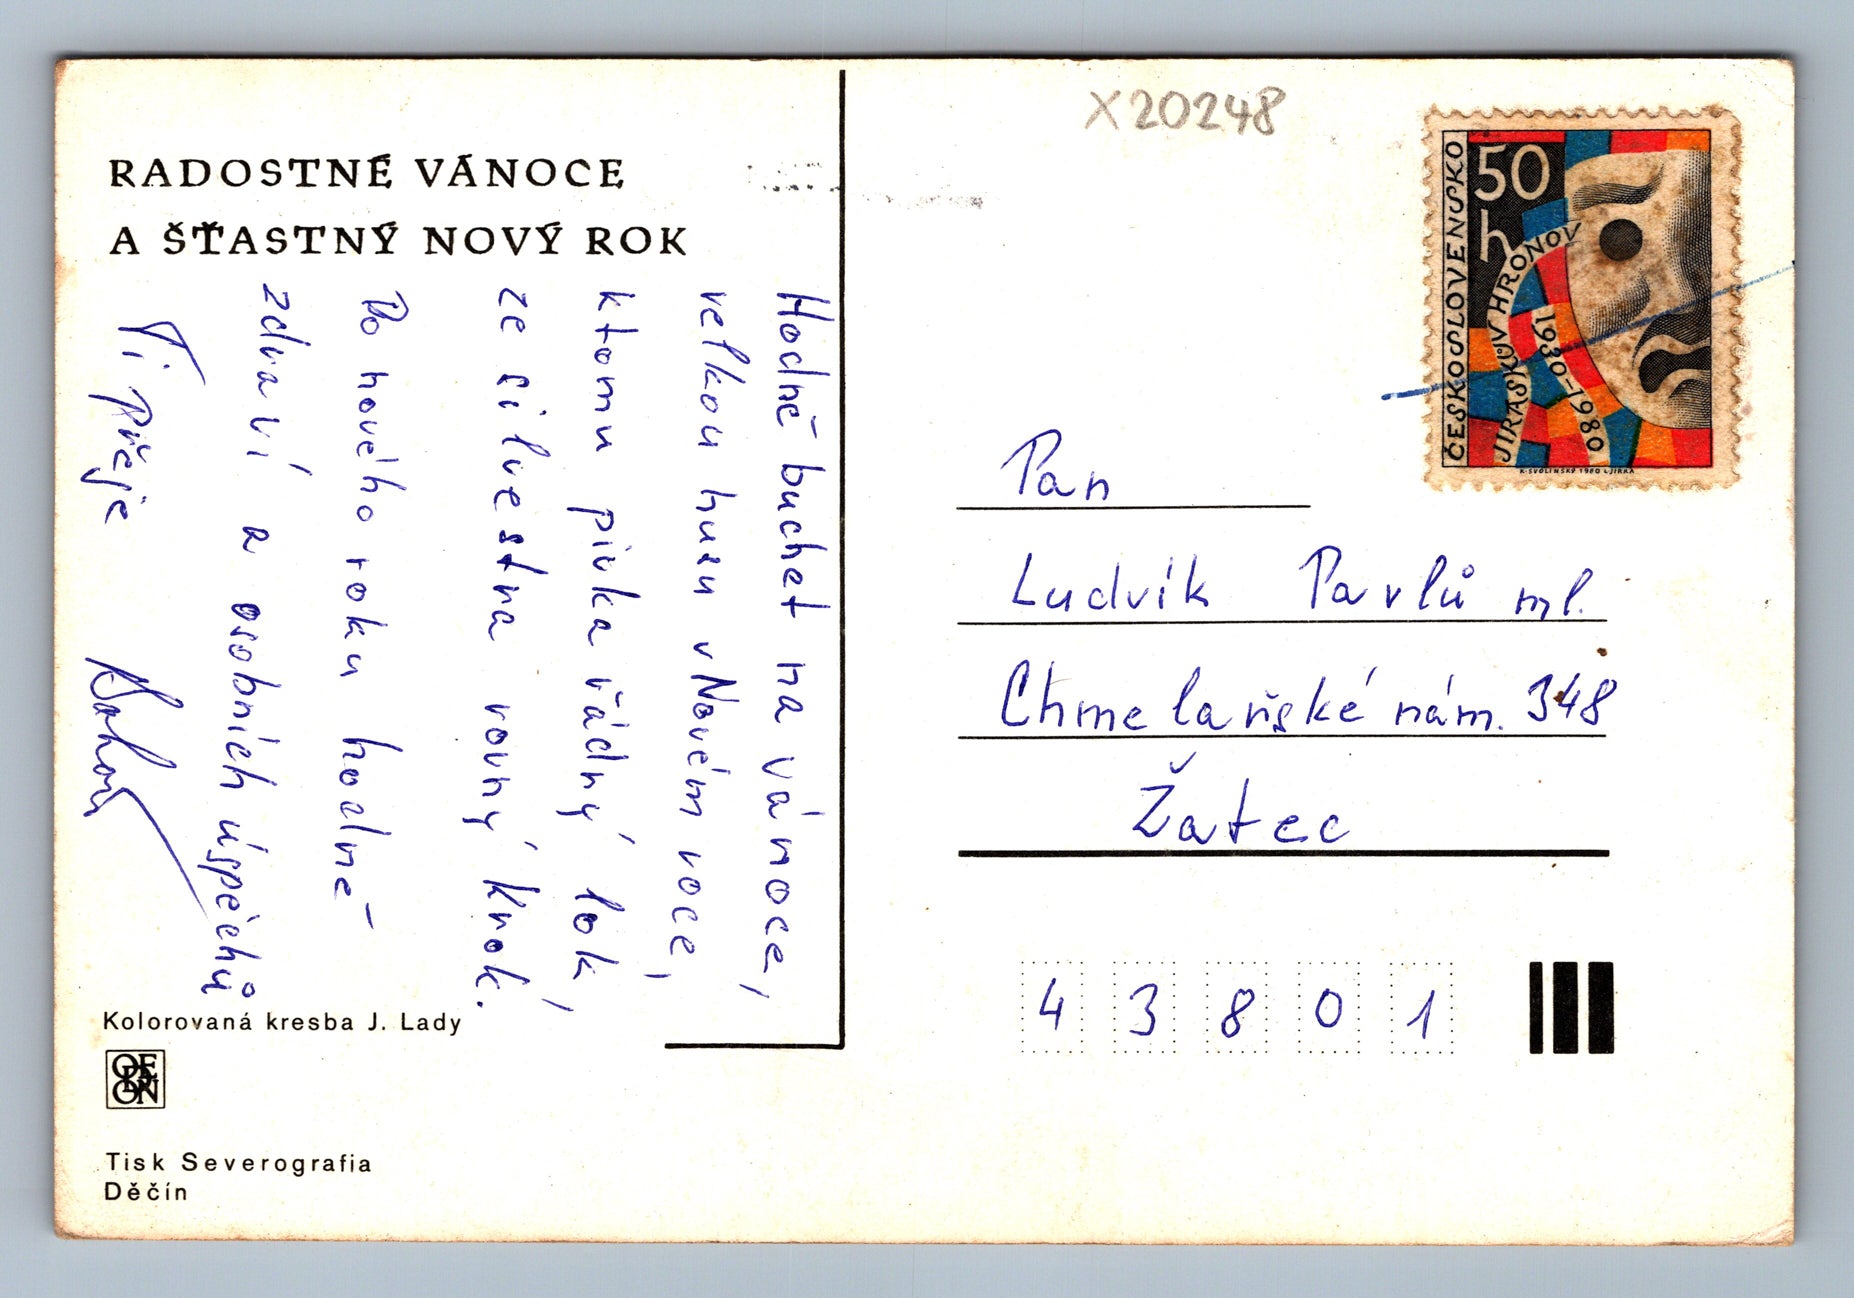 RADOSTNÉ VÁNOCE
A ŠŤASTNÝ NOVÝ ROK
Hodně buchet na vánoce,
velkou husu v Novém roce,
k tomu pivka řádný lok,
ze silvestra rovný krok.
Do nového roku hodně
zdraví a osobních úspěchů
Ti přeje
Kolorovaná kresba J. Lady
ODEON
Tisk Severografia
Děčín
X20248
ČESKOSLOVENSKO
50
h
JIRÁSKŮV HRONOV
1930-1980
K·SVOLINSKÝ 1980 L·JIRKA
Pan
Ludvík Pavlů ml.
Chmelařské nám. 348
Žatec
43801